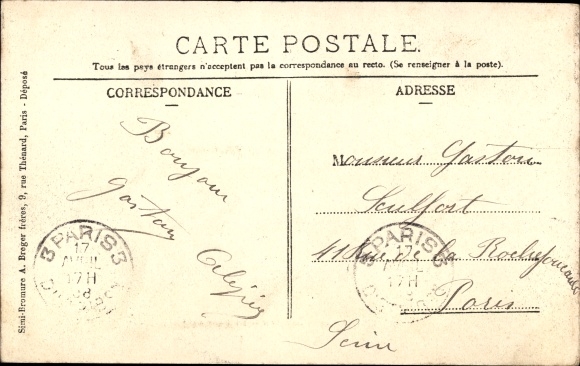 CARTE POSTALE.
Tous les pays étrangers n'acceptent pas la correspondance au recto. (Se renseigner à la poste).
CORRESPONDANCE
Bonjour
Gaston
ADRESSE
Monsieur Gaston
Seulfort
41 Rue de la Rochefoucauld
Paris
Seine
PARIS
17
AVRIL
17H
PARIS
17
17H
Simi-Bromure A. Breger frères, 9, rue Thénard, Paris - Déposé